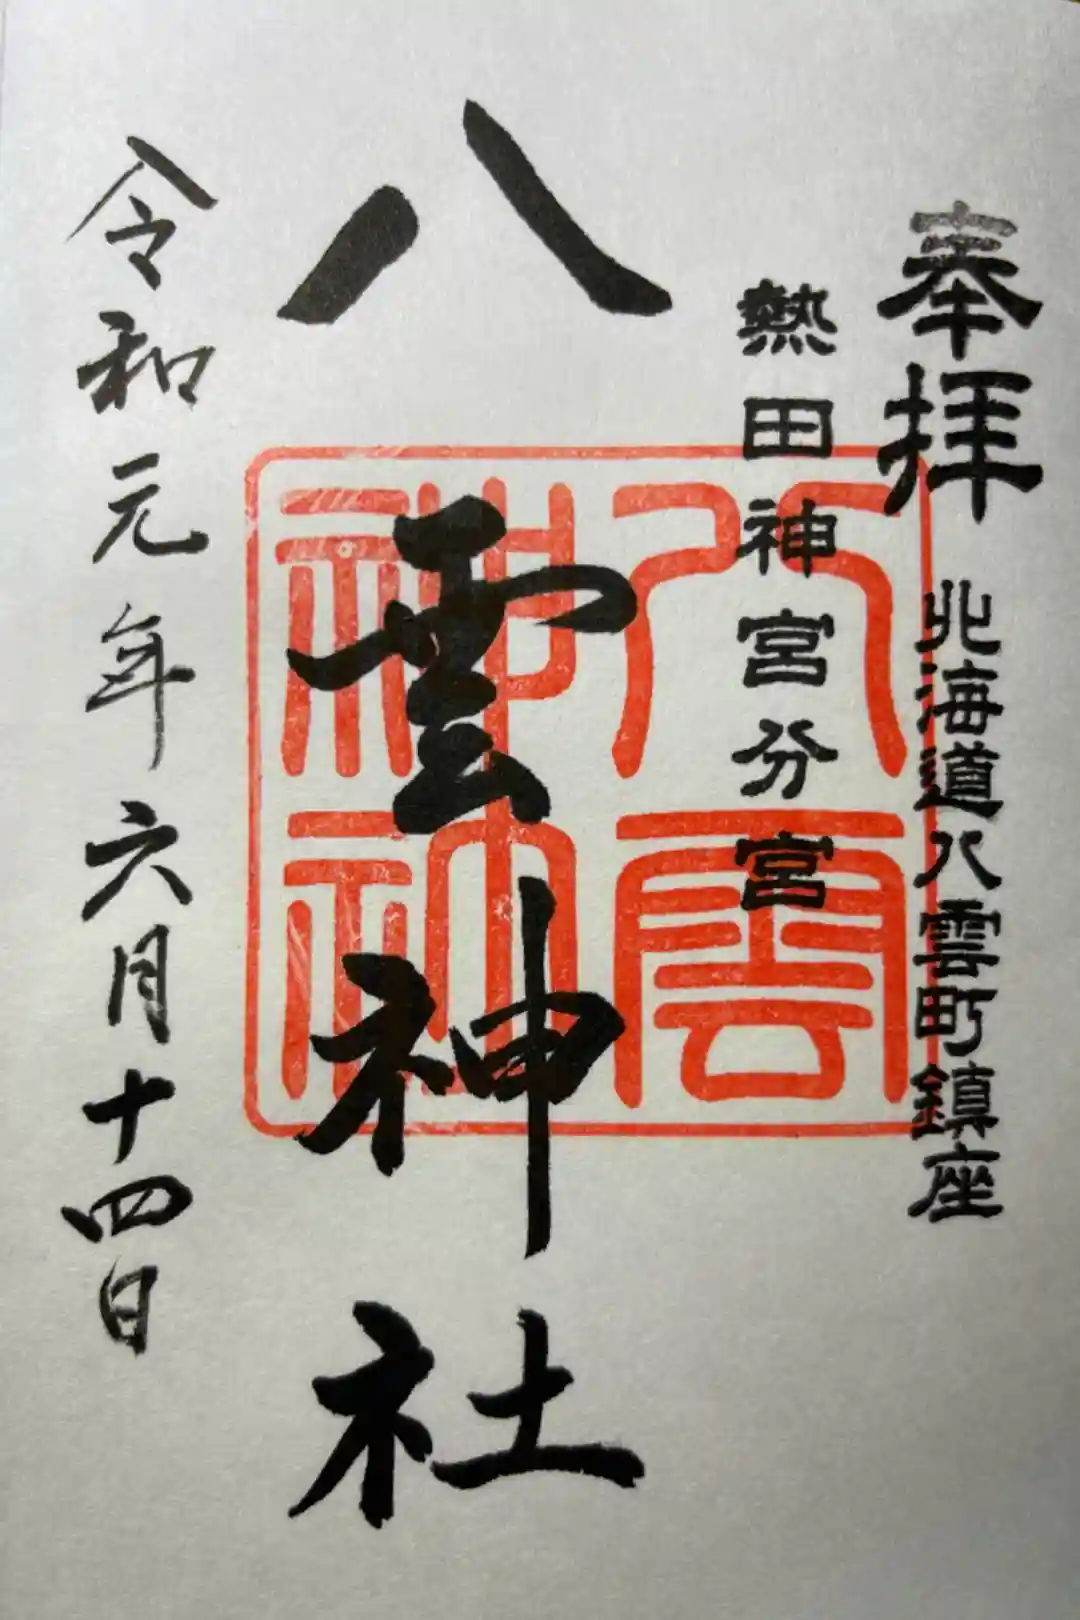 奉拝
北海道八雲町鎮座
熱田神宮分宮
八雲神社
八雲
神社
令和元年六月十四日